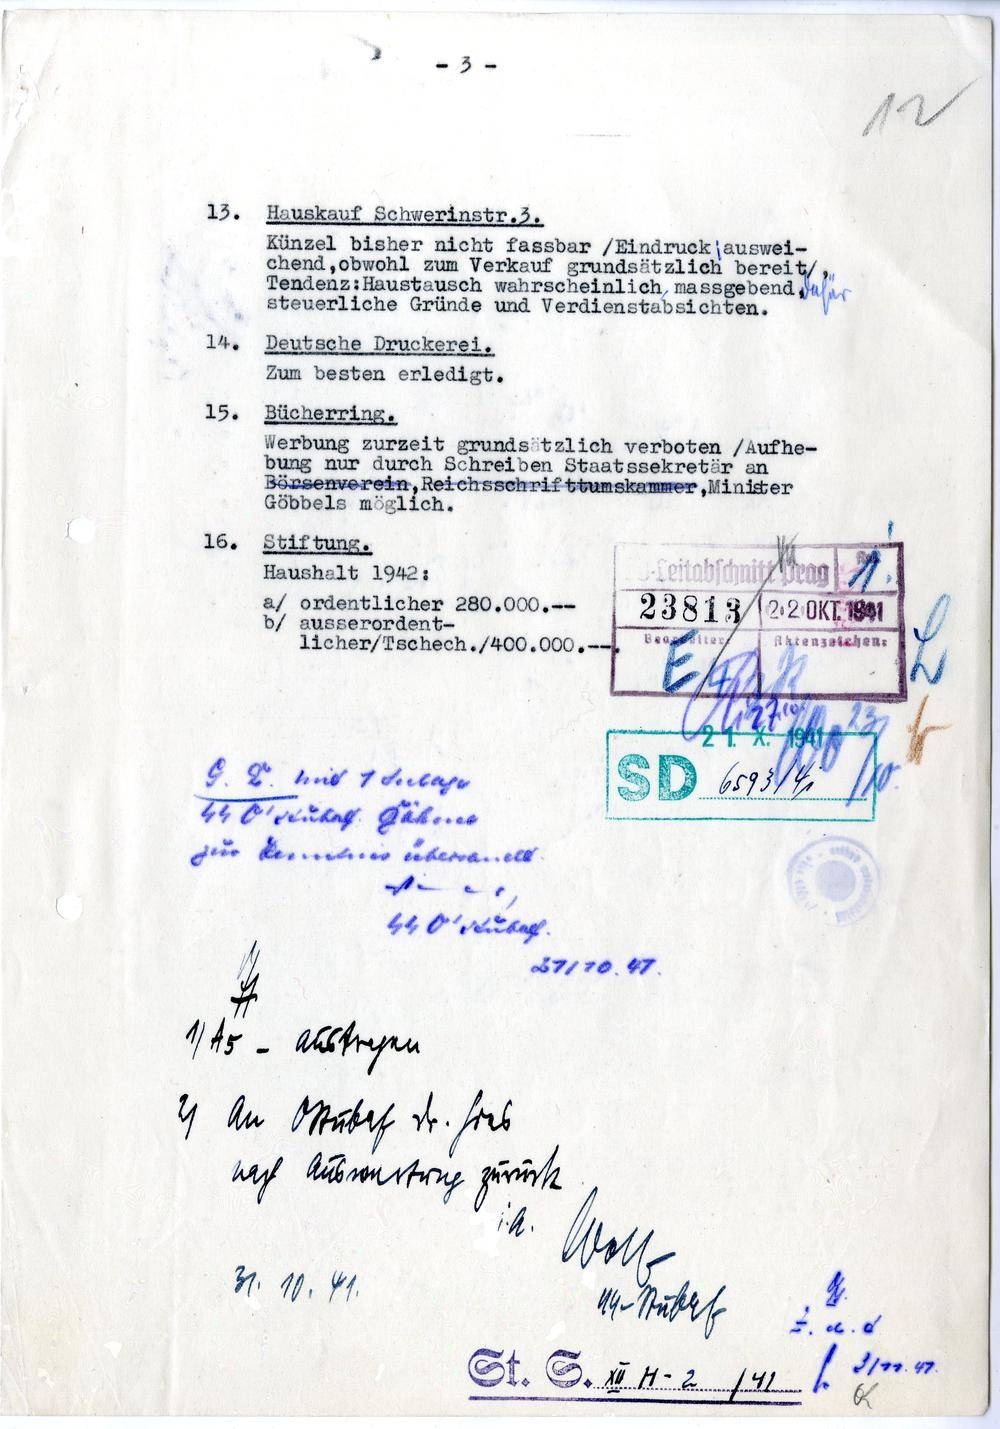 - 3 -
12
13. Hauskauf Schwerinstr.3.
Künzel bisher nicht fassbar /Eindruck auswei-
chend,obwohl zum Verkauf grundsätzlich bereit/,
Tendenz:Haustausch wahrscheinlich, massgebend, dafür
steuerliche Gründe und Verdienstabsichten.
14. Deutsche Druckerei.
Zum besten erledigt.
15. Bücherring.
Werbung zurzeit grundsätzlich verboten /Aufhe-
bung nur durch Schreiben Staatssekretär an
Börsenverein,Reichsschrifttumskammer,Minister
Göbbels möglich.
16. Stiftung.
Haushalt 1942:
a/ ordentlicher 280.000.--
b/ ausserordent-
licher/Tschech./400.000.--.
-Leitabschnitt Prag
23813 22. OKT. 1941
Bearbeiter: Aktenzeichen:
E
27.10.
23/10.
21. X. 1941
SD 6593/41
G. R. mit 1 Anlage
SS O'Stubaf. Böhme
zur Kenntnis übersandt.
SS O'Stubaf.
21/10. 41.
1) A5 - austragen
2) An OStubaf Dr. Gies
nach Auswertung zurück
i.A. Wolf
31. 10. 41.
SS-Stubaf
Z. d. A
3/11. 41.
St. S. XII H - 2 /41